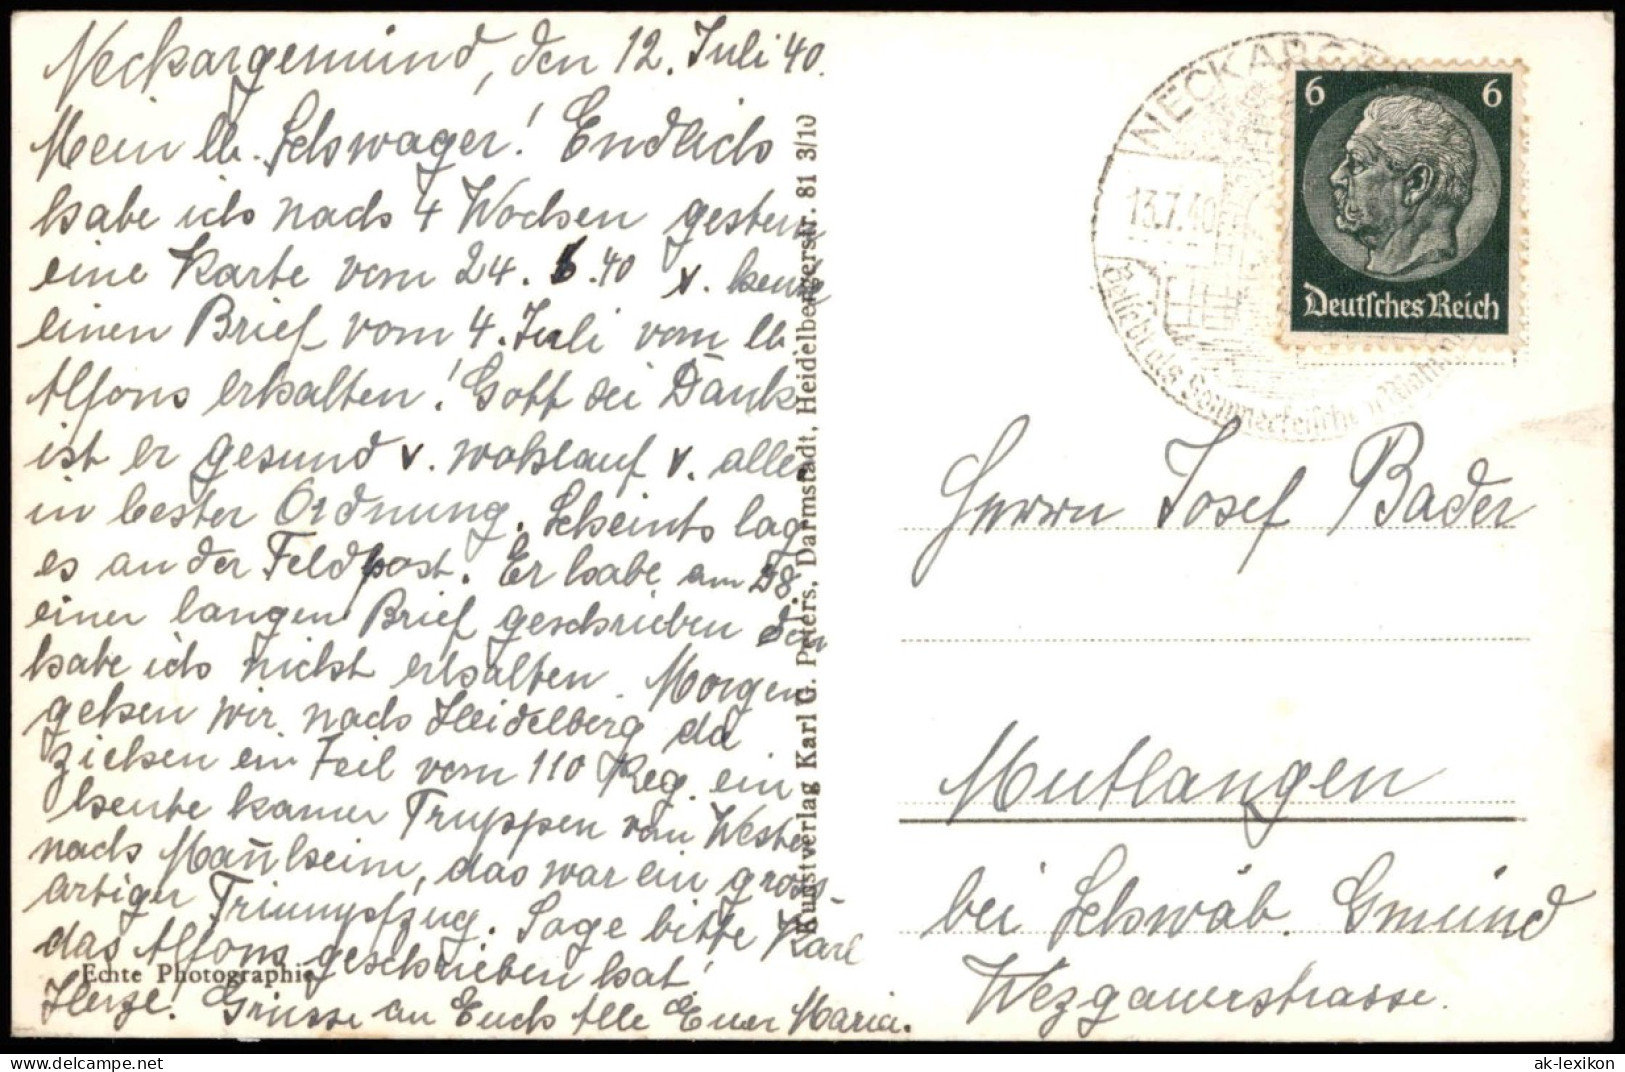 Neckargemünd, den 12. Juli 40.
Mein lb. Schwager! Endlich
habe ich nach 4 Wochen gestern
eine Karte vom 24. 6. 40 u.
einen Brief vom 4. Juli vom lb.
Alfons erhalten! Gott sei Dank
ist er gesund u. wohlauf u. alles
in bester Ordnung. Scheints lag
es an der Feldpost. Er habe am 28.
einen langen Brief geschrieben den
habe ich nicht erhalten. Morgen
gehen wir nach Heidelberg da
ziehen ein Teil vom 110 Reg. ein
heute kamen Truppen vom Westen
nach Mannheim, das war ein gross-
artiger Triumpfzug. Sage bitte Karl
das Alfons geschrieben hat!
Herze! Grüsse an Euch Alle Euer Maria.
Echte Photographie
Kunstverlag Karl G. Peters, Darmstadt, Heidelbergerstr. 81 3/10
NECKARGE
13.7.40
Beliebt als Sommerfrische u.
6 6
Deutsches Reich
Herrn Josef Bader
Mutlangen
bei Schwäb. Gmünd
Wezgauerstrasse.
https://www.ak-ansichtskarten.de
ak-lexikon